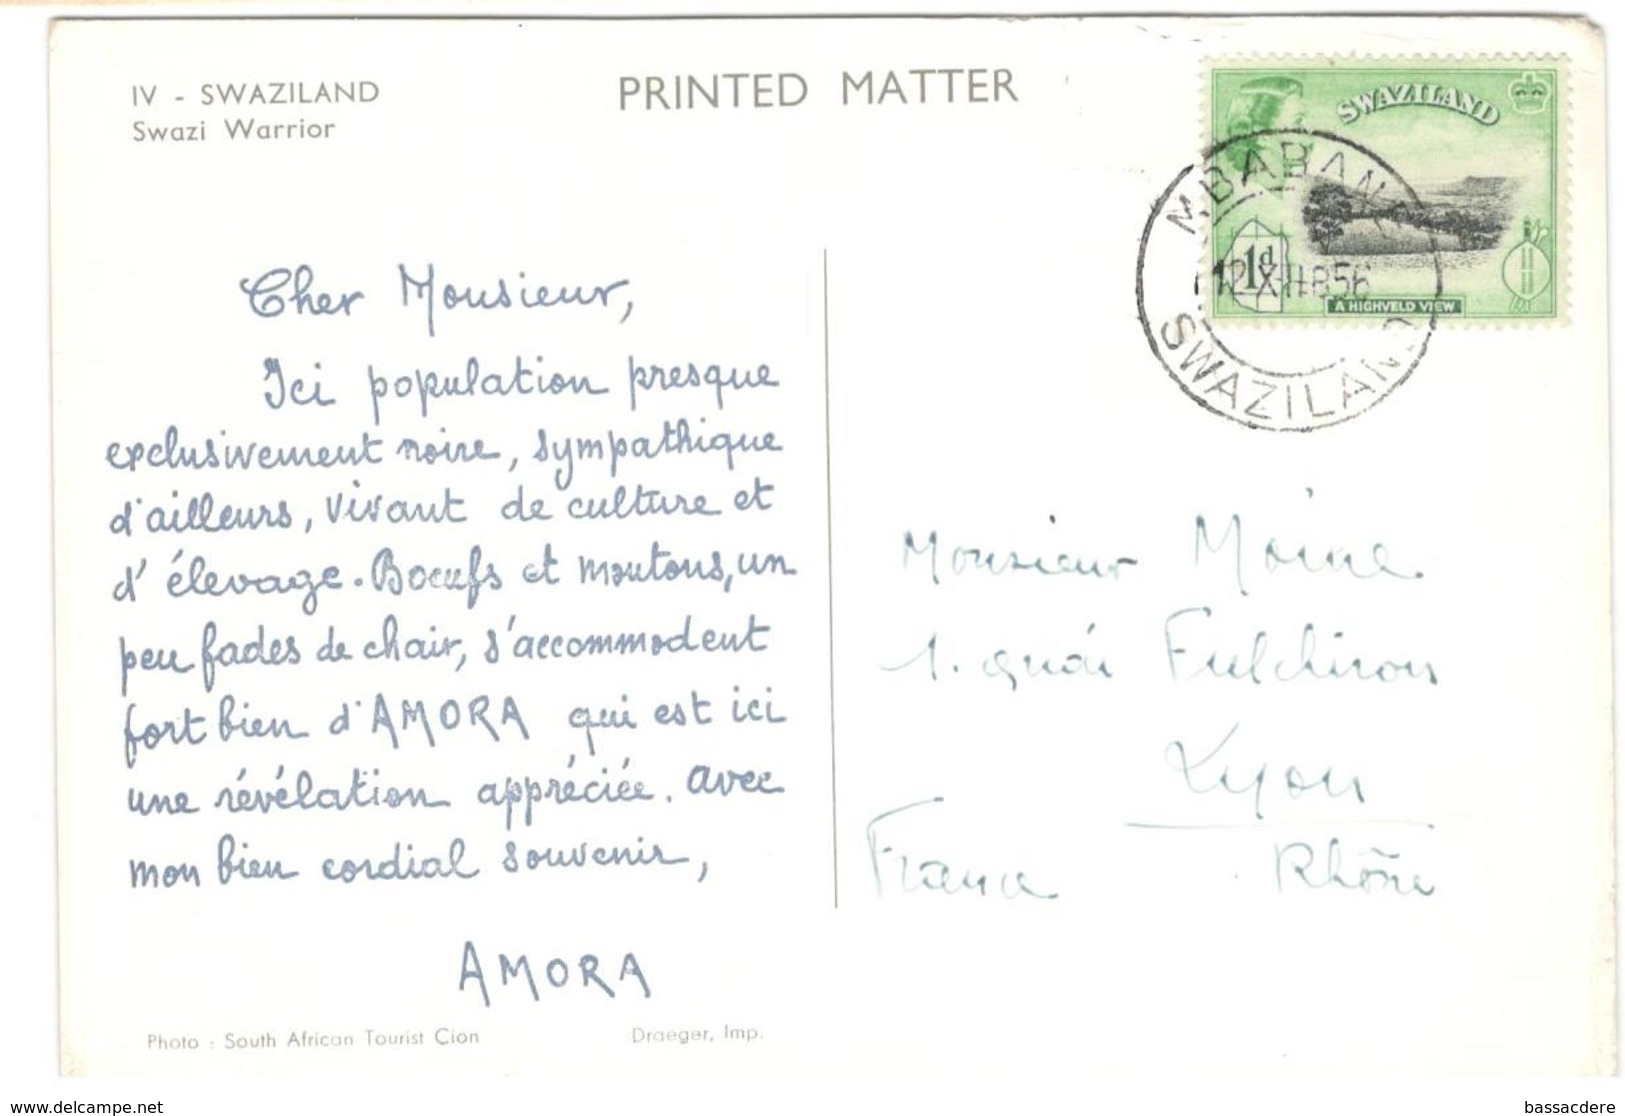 IV - SWAZILAND
Swazi Warrior
PRINTED MATTER
SWAZILAND
1d
A HIGHVELD VIEW
MBABANE
SWAZILAND
Cher Monsieur,
Ici population presque
exclusivement noire, sympathique
d'ailleurs, vivant de culture et
d'élevage. Boeufs et moutons, un
peu fades de chair, s'accommodent
fort bien d'AMORA qui est ici
une révélation appréciée. avec
mon bien cordial souvenir,
AMORA
Monsieur Moine
1. quai Fulchiron
Lyon
France Rhône
Photo : South African Tourist Cion
Draeger, Imp.
www.delcampe.net
bassacdere